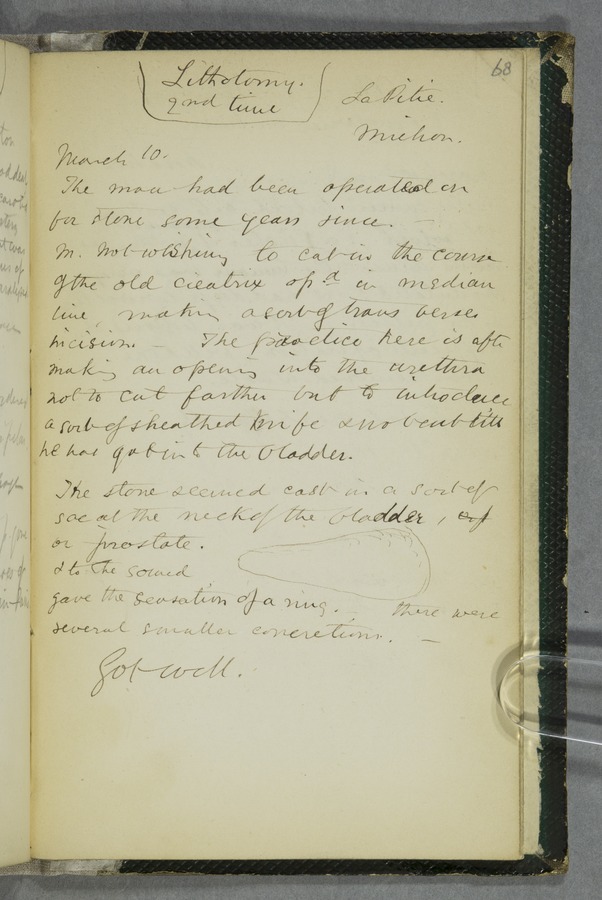 68
Lithotomy.
2nd time
La Pitie.
Michon.
March 10.
The man had been operated on
for stone some years since. —
M. not wishing to cut in the course
of the old cicatrix op.d in median
line, making a sort of transverse
incision. — The practice here is afte
making an opening into the urethra
not to cut farther but to introduce
a sort of sheathed knife & not cut till
he has got into the bladder.
The stone seemed cast in a sort of
sac at the neck of the bladder, of
or prostate.
& to the sound
gave the sensation of a ring. there were
several smaller concretions. —
Got well.